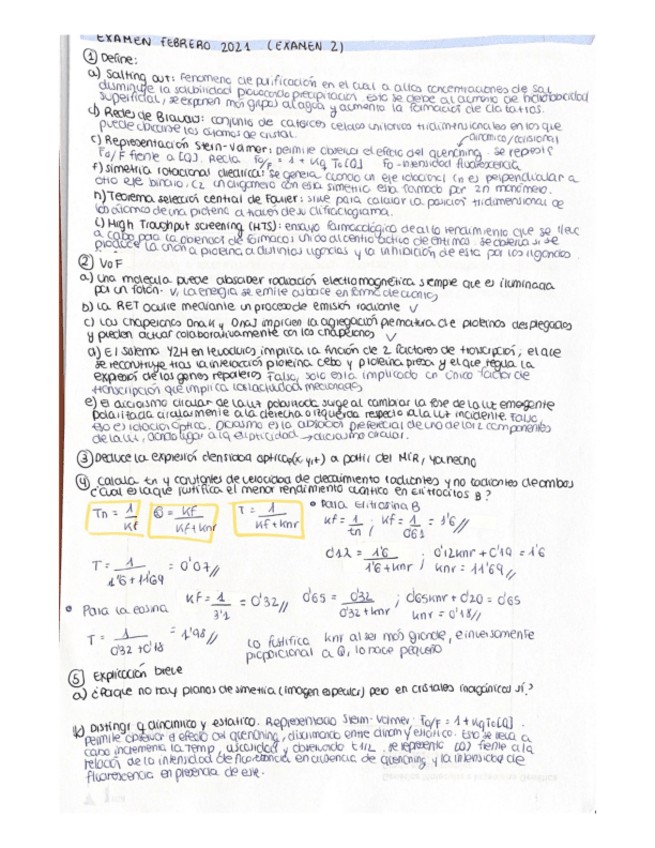 EXAMEN FEBRERO 2021 (EXAMEN 2)
① Define:
a) Salting out: fenomeno de purificación en el cual a altas concentraciones de sal
disminuye la solubilidad provocando precipitación. esto se debe al aumento de hidrofobicidad
superficial, se exponen más grupos al agua y aumenta la formación de clatratos.
d) Redes de Bravais: conjunto de celdas unitarias tridimensionales en los que
puede los átomos de cristal.
dinámico/colisional
c) Representación Stern-Volmer: permite observar el efecto del quenching. se repres
Fo/F frente a [Q]. Recta Fo/F = 1 + Kq To[Q] Fo-intensidad fluorescencia
f) Simetría rotacional diedrica: se genera cuando un eje rotacional Cn es perpendicular a
otro eje binario. C2 un oligomero con esta simetria esta formado por 2n monómero.
h) Teorema selección central de Fourier: sirve para calcular la posición tridimensional de
los átomos de una proteina a traves de su difractograma.
i) High Troughput screening (HTS): ensayo farmacológico de alto rendimiento que se llev
a cabo para la obtencion de farmacos unido al centro activo de enzimas. se observa si se
produce la unión a proteina a distintos ligandos y la inhibición de esta por los ligandos.
② VoF
a) una molecula puede absorber radiación electromagnética siempre que es iluminada
por un fotón. V, la energía se emite o absorbe en forma de cuantos
b) la RET ocurre mediante un proceso de emisión radiante V
c) Las chaperonas DnaK y DnaJ impiden la agregación prematura de proteinas desplegadas
y pueden actuar colaborativamente con las chaperonas V
d) El sistema Y2H en levaduras implica la función de 2 factores de transcripción, el que
se reconstruye tras la interacción proteína cebo y proteína presa y el que regula la
expresión de los genes reporteros Falso, solo esta implicado un único factor de
transcripción que implica
e) el dicroismo circular de la luz polarizada surge al cambiar la fase de la luz emergente
polarizada circularmente a la derecha o izquierda respecto a la luz incidente. Falso,
eso es rotación óptica. Dicroismo es la absorción preferencial de uno de los 2 componentes
de la luz, dando lugar a la elipticidad → dicroismo circular.
③ Deduce la expresión densidad óptica ρ(x,y,z) a partir del MIR, ya hecho
④ calcula tn y constantes de velocidad de decaimiento radiantes y no radiantes de ambos
¿Cual es la que justifica el menor rendimiento cuántico en Eritrocitos B?
Tn = 1/Kf Q = Kf/Kf+Knr T = 1/Kf+Knr
• Para Eritrosina B
Kf = 1/tn ; Kf = 1/0'61 = 1'6//
T = 1/1'6+11'69 = 0'07//
0'12 = 1'6/1'6+Knr ; 0'12Knr + 0'19 = 1'6
Knr = 11'69//
• Para la eosina Kf = 1/3'1 = 0'32// 0'65 = 0'32/0'32+Knr ; 0'65Knr + 0'20 = 0'65
Knr = 0'18//
T = 1/0'32+0'18 = 1'98//
Lo justifica Knr al ser más grande, e inversamente
proporcional a Q, lo hace pequeño
⑤ Explicación breve
a) ¿Porque no hay planos de simetria (imagen especular) pero en cristales inorgánicos sí?
b) Distingir q dinámico y estatico. Representacio Stern-Volmer: Fo/F = 1 + Kq To[Q].
Permite observar el efecto del quenching, discrimando entre dinam y estático. Esto se lleva a
cabo incrementa la temp, viscosidad y observando t1/2. se representa [Q] frente a la
relación de la intensidad de fluorescencia en ausencia de quenching y la intensidad de
fluorescencia en presencia de este.